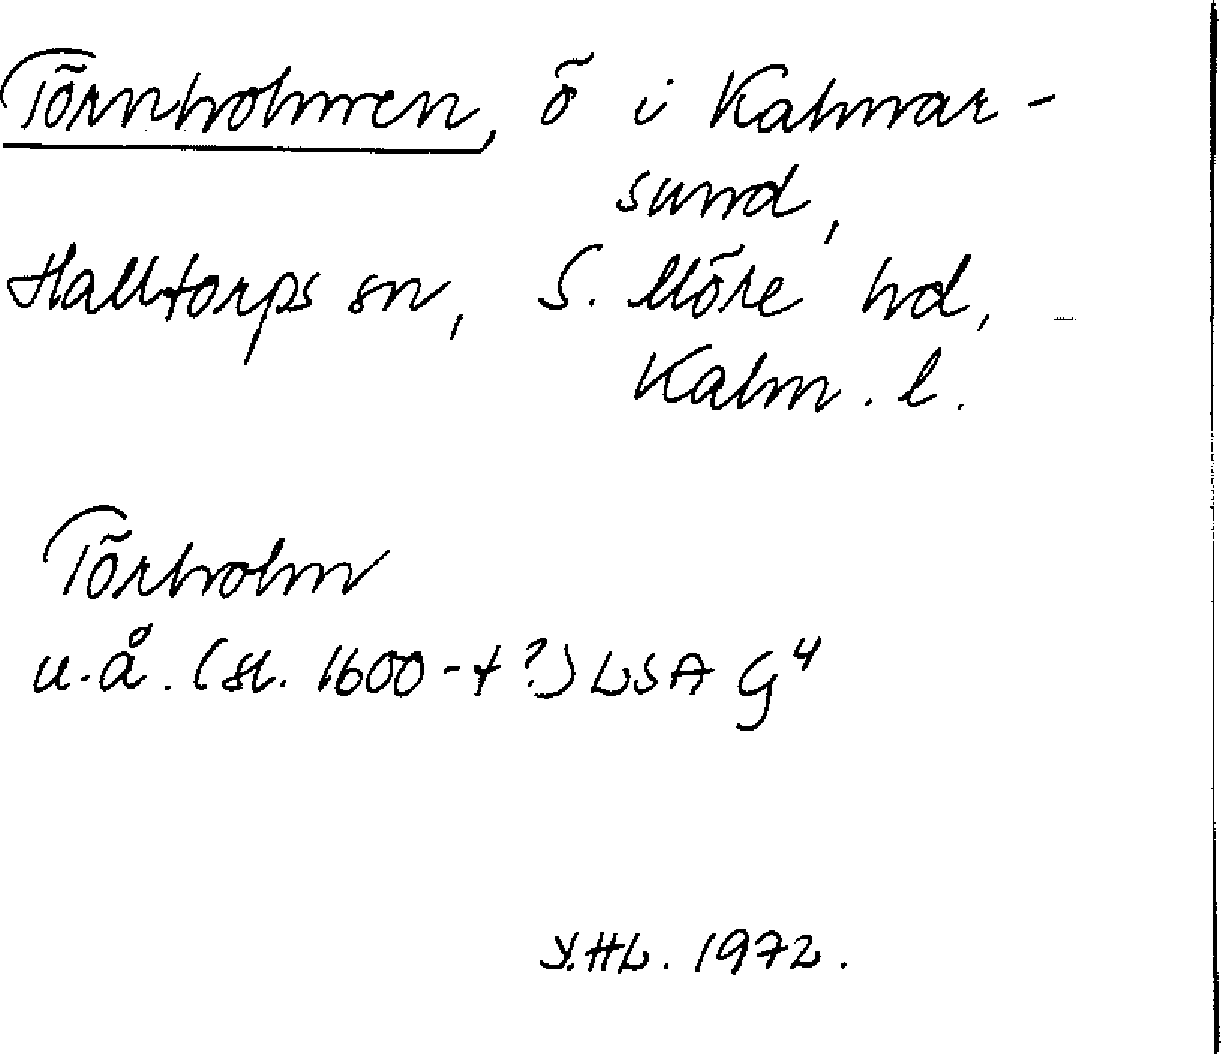 Törnholmen, ö i Kalmar-
sund,
Halltorps sn, S. Möre hd,
Kalm. l.
Törholm
u.å. (sl. 1600-t?) LSA G4
Y.HL. 1972.